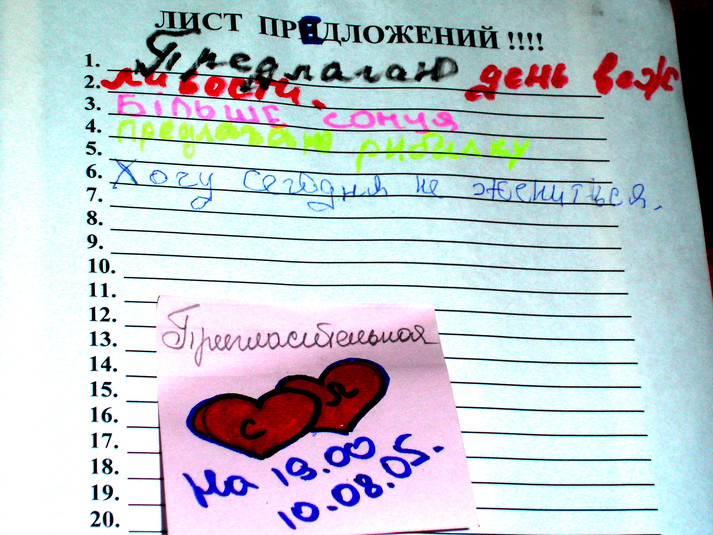 ЛИСТ ПРЕДЛОЖЕНИЙ !!!!
1. Предлагаю день веж
2. ливости.
3. БІЛЬШЕ СОНЦЯ
4. предлагаю рибалку
5.
6. Хочу сегодня не жениться.
7.
8.
9.
10.
11.
12.
13.
14.
15.
16.
17.
18.
19.
20.
Пригласительная
С Я
на 19.00
10.08.05.